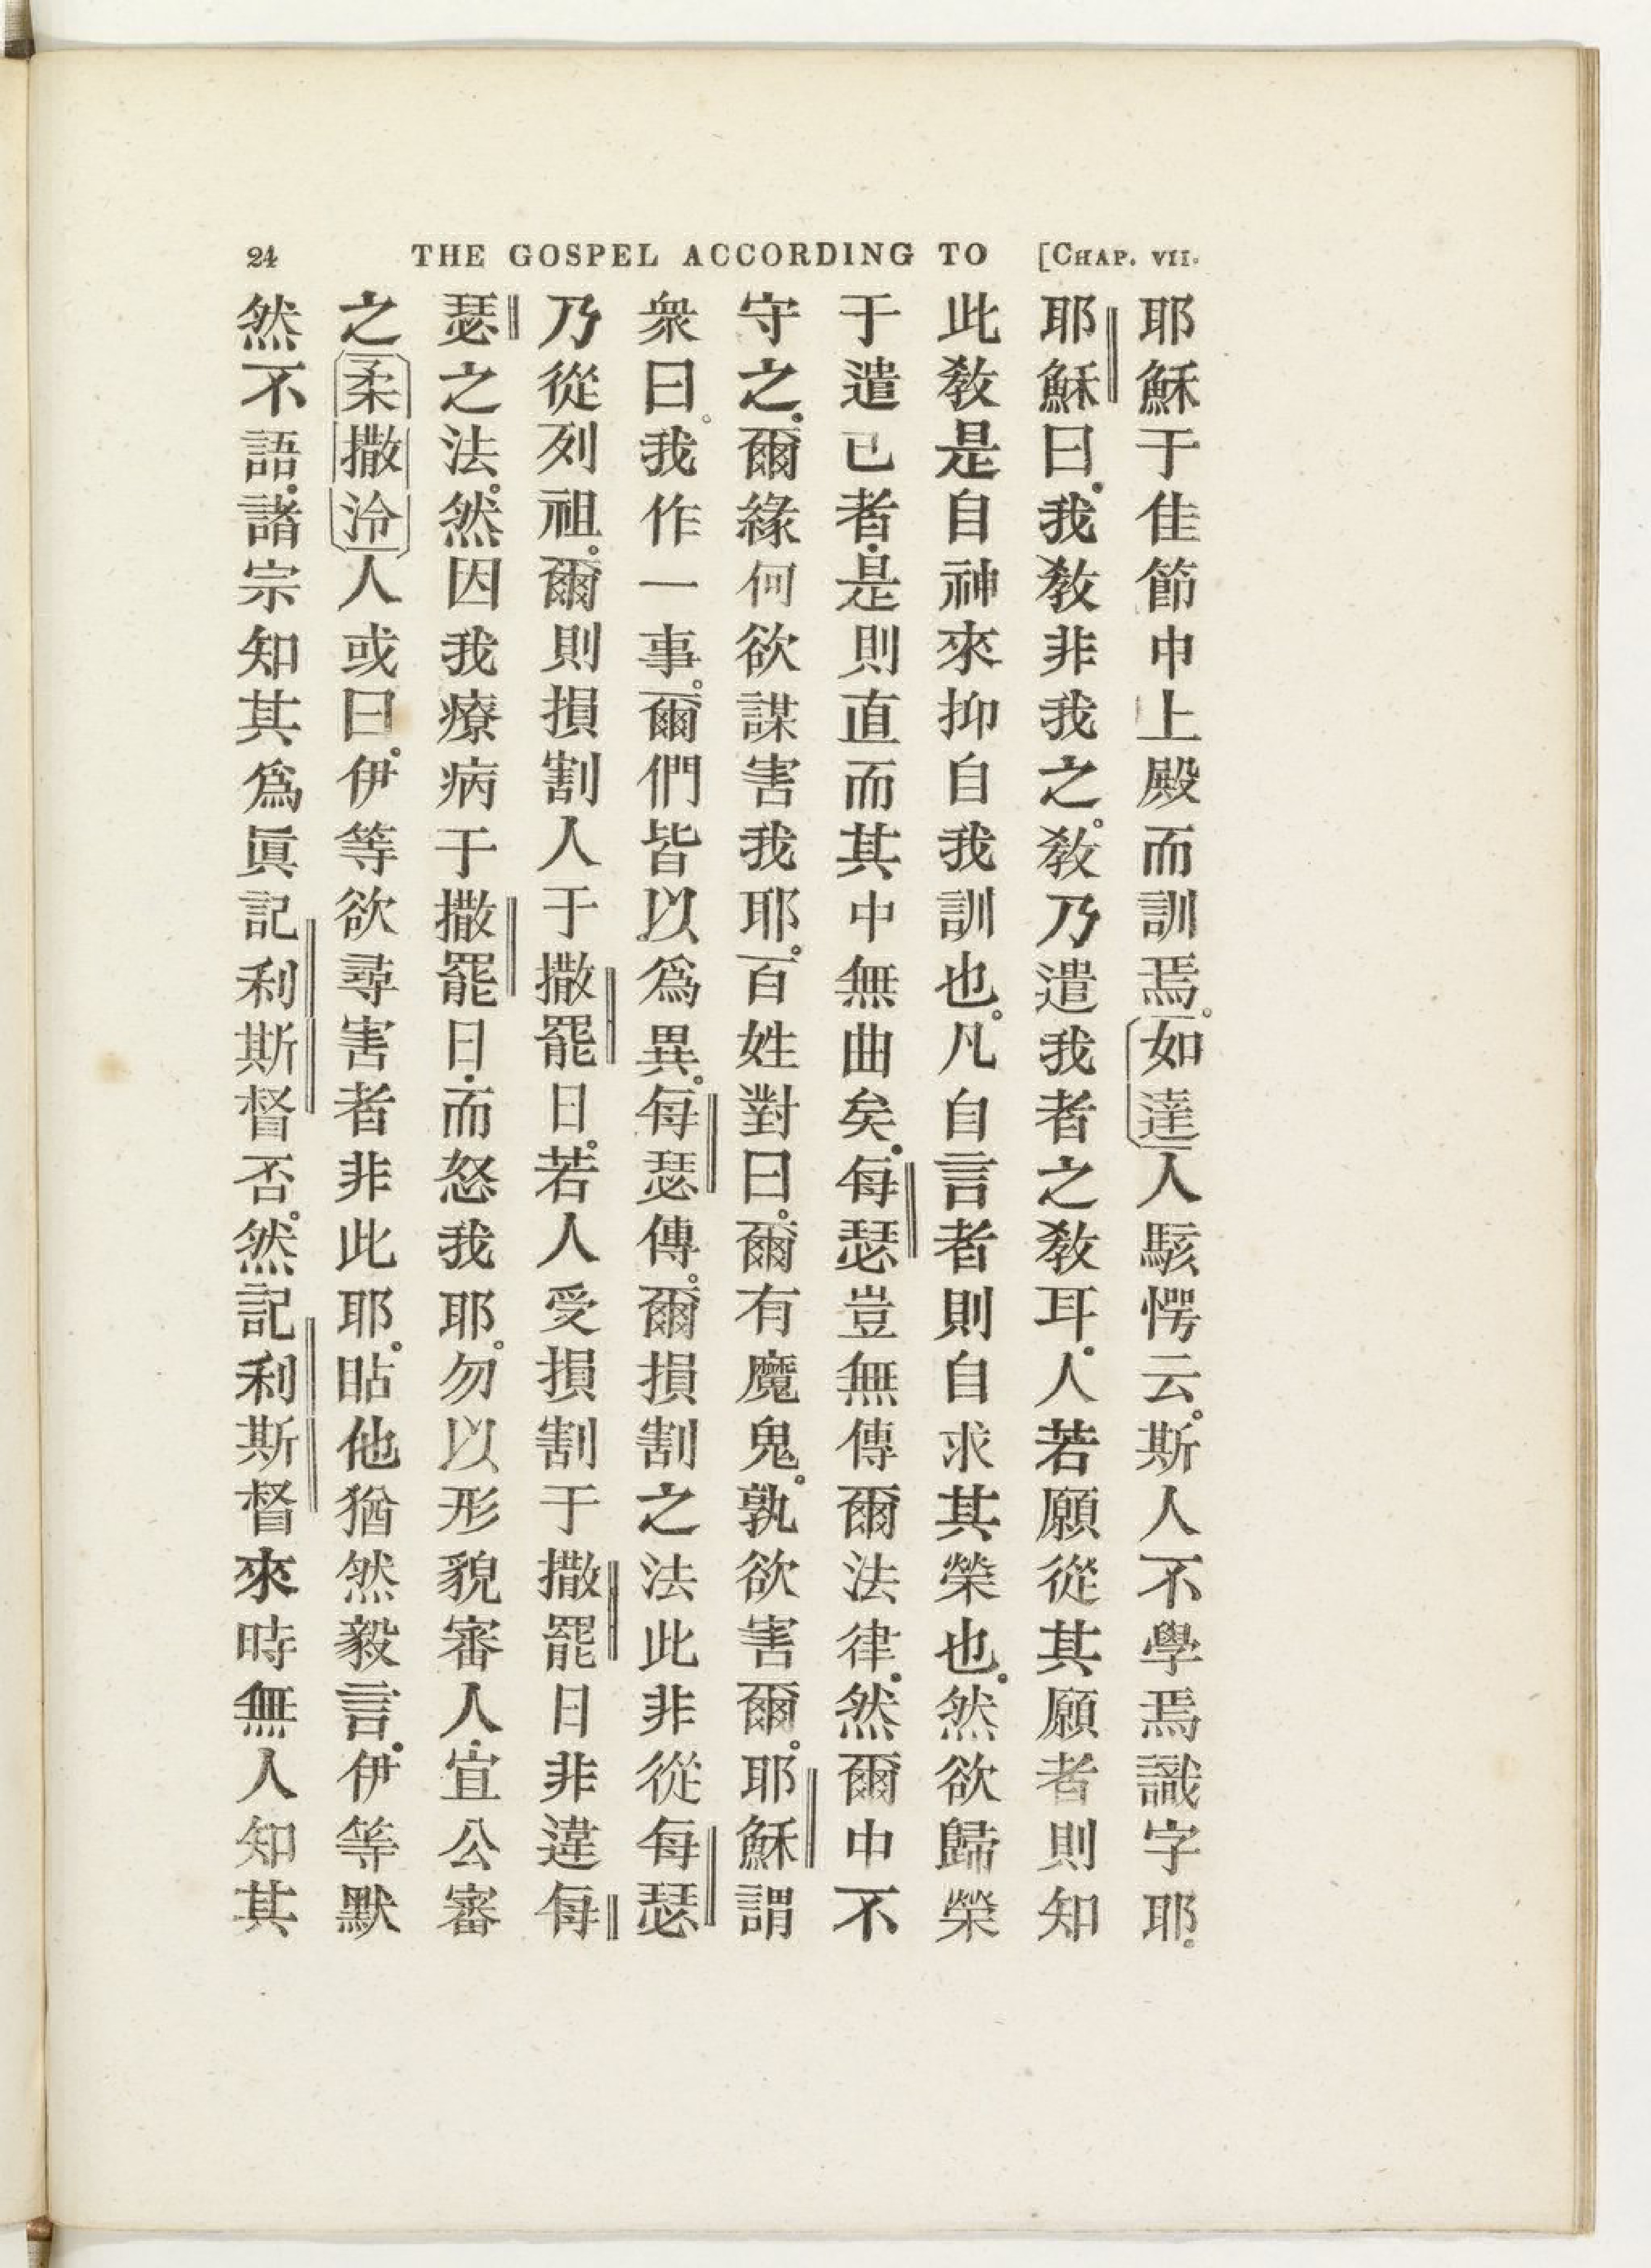 24 THE GOSPEL ACCORDING TO [CHAP. VII.
耶穌于佳節中上殿而訓焉。如達人駭愕云。斯人不學焉識字耶。
耶穌曰。我教非我之。教乃遣我者之教耳。人若願從其願者則知
此教是自神來抑自我訓也。凡自言者則自求其榮也。然欲歸榮
于遣已者。是則直而其中無曲矣。每瑟豈無傳爾法律。然爾中不
守之。爾緣何欲謀害我耶。百姓對曰。爾有魔鬼。孰欲害爾。耶穌謂
衆曰。我作一事。爾們皆以爲異。每瑟傳。爾損割之法此非從每瑟
乃從列祖。爾則損割人于撒罷日。若人受損割于撒罷日非違每
瑟之法。然因我療病于撒罷日。而怒我耶。勿以形貌審人。宜公審
之柔撒泠人或曰。伊等欲尋害者非此耶。㕓他猶然毅言。伊等默
然不語。諸宗知其爲眞記利斯督否。然記利斯督來時無人知其